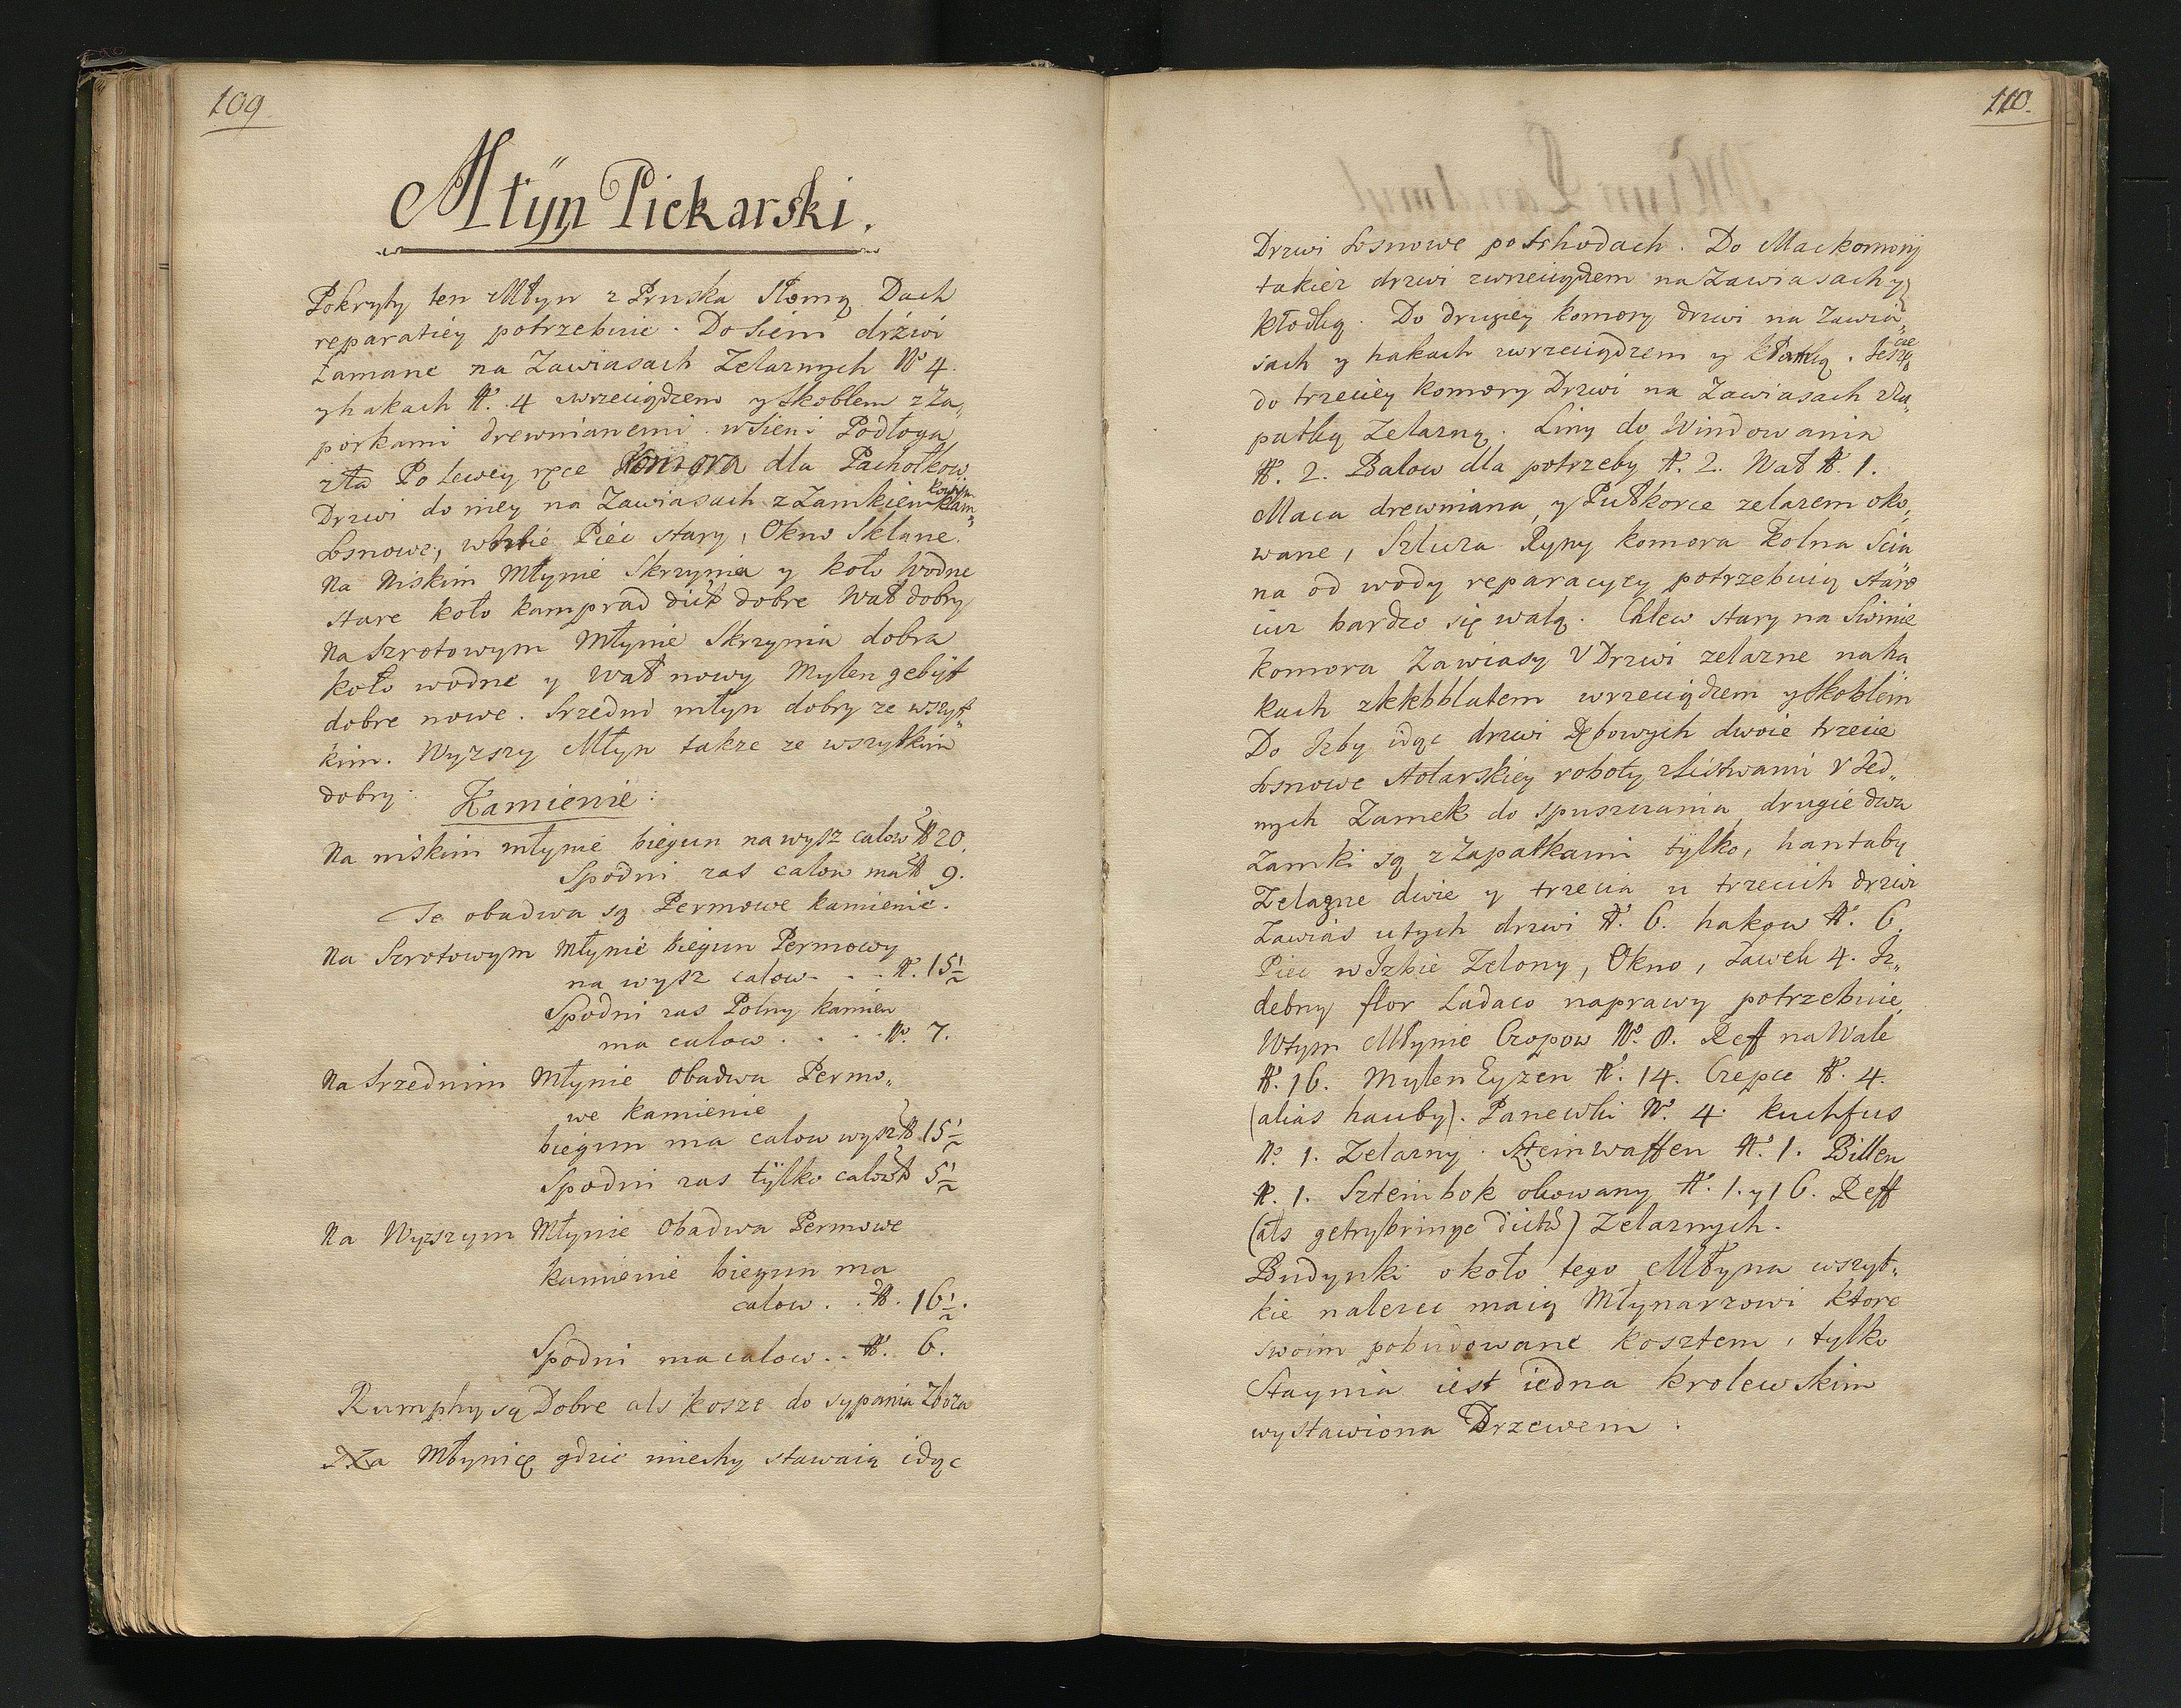 109
Młÿn Piekarski.
Pokryty ten Młyn z Pruska Słomą Dach
reparatiey potrzebuie. Do Sieni drźwi
łamane na Zawiasach Zelaznych N° 4.
y hakach N°. 4 zwrzeciądzem y Skoblem z Za„
porkami drewnianemi. w Sieni Podłoga
zła Po Lewey ręce Komora dla Pachołkow
Drzwi do niey na Zawiasach z Zamkiem
Sosnowe, w Izbie Piec stary, Okno Sklane.
Na Niskim Młynie Skrzynia y koło Wodne
stare koło kamprad dict° dobre Wał dobry
Na Szrotowym Młynie Skrzynia dobra
koło wodne y Wał nowy Mylen gebÿt
dobre nowe. Srzedni młyn dobry ze wszyt„
kim. Wyzszy Młyn takze ze wszytkim
dobry: Kamienie:
Na niskim młynie biegun na wysz calow N° 20.
Spodni zas calow ma N° 9.
Te obadwa są Permowe kamienie.
Na Szrotowym Młynie biegun Permowy
na wysz calow . . . N°. 15½
Spodni zas Polny kamien
ma calow . . . . N°. 7.
Na Srzednim Młynie Obadwa Permo„
we kamienie
biegun ma calow wysz N° 15½
Spodni zas tÿlko calow N° 5½
Na Wyzszym Młynie Obadwa Permowe
kamienie biegun ma
calow . . N°. 16½.
Spodni ma calow . . N°. 6.
Rumphy są Dobre als kosze do sypania Zboza
Na Młynicę gdzie miechy stawaią idąc
110.
Drzwi Sosnowe po Schodach. Do Mackomory
takiez drzwi zwrzeciądzem na Zawiasach y
kłodką. Do drugiey komory drzwi na Zawia„
sach y hakach zwrzeciądzem y kłodką. Ieszcze
do trzeciey komory Drzwi na Zawiasach z Za„
patką Zelazną. Liny do Windowania
N°. 2. Balow dla potrzeby N°. 2. Wał N°. 1.
Maca drewniana, y Pułkorce zelazem oko„
wane, Szluza Ryny komora kolna Scia
na od wody reparacyey potrzebuią stäre
iuz bardzo się walą. Chlew stary na Swinie
komora Zawiasy V Drzwi zelazne na ha
kach wrzeciądzem y Skoblem
Do Izby idąc drzwi Dębowych dwoie trzecie
Sosnowe stolarskiey roboty z Listwami V Ied„
nych Zamek do spuszczania drugie dwa
Zamki są z Zapatkami tÿlko, hantaby
Zelazne dwie y trzecia u trzecich drzwi
Zawias u tych drzwi N°. 6. hakow N°. 6.
Piec w Izbie Zelony, Okno, Ławek 4. Iz„
debny flor Ladaco naprawy potrzebuie
W tym Młynie Czopow N°. 8. Reff na Wale
N°. 16. Mylen Eyzen N°. 14. Czepce N°. 4.
(alias hauby). Panewki N°. 4. kuchfus
N°. 1. Zelazny. Szteinwaffen N°. 1. Billen
N°. 1. Szteinbok okowany N°. 1. y 16. Reff
(als getrybringe dict°) Zelaznych.
Budynki około tego Młyna wszyt„
kie nalezec maią Młynarzowi ktore
swoim pobudowane kosztem, tylko
Staynia iest iedna krolewskim
wystawiona Drzewem.